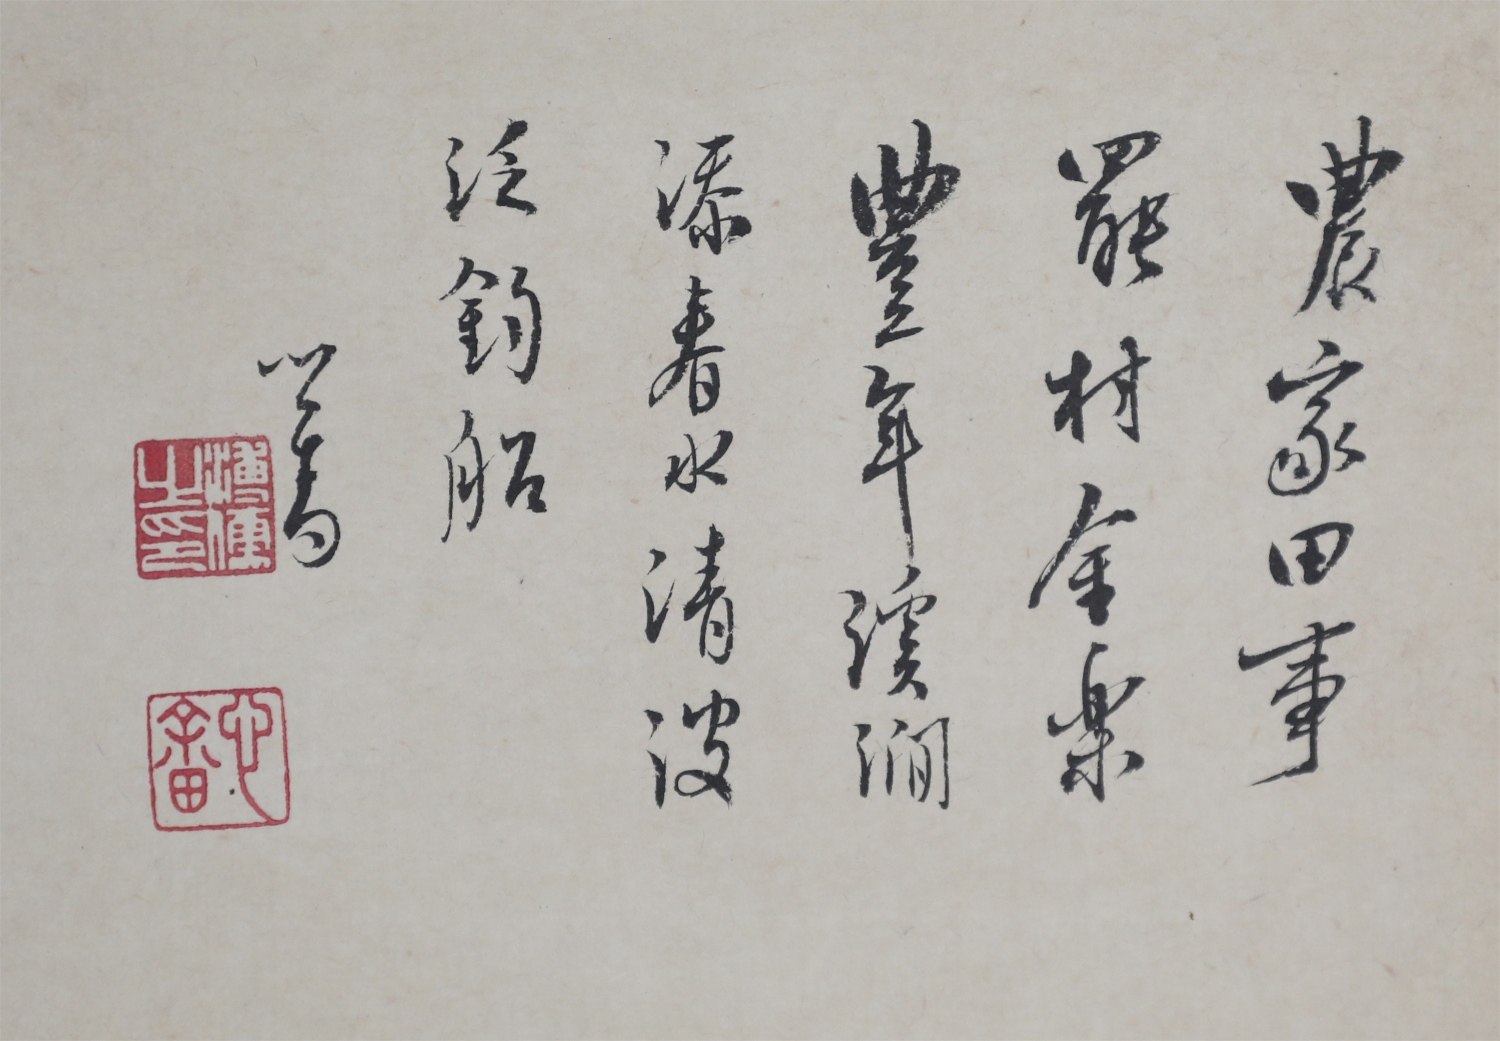 農家田事
罷村舍樂
豐年溪澗
添春水清波
泛釣船
心畬
溥儒之印
心畬